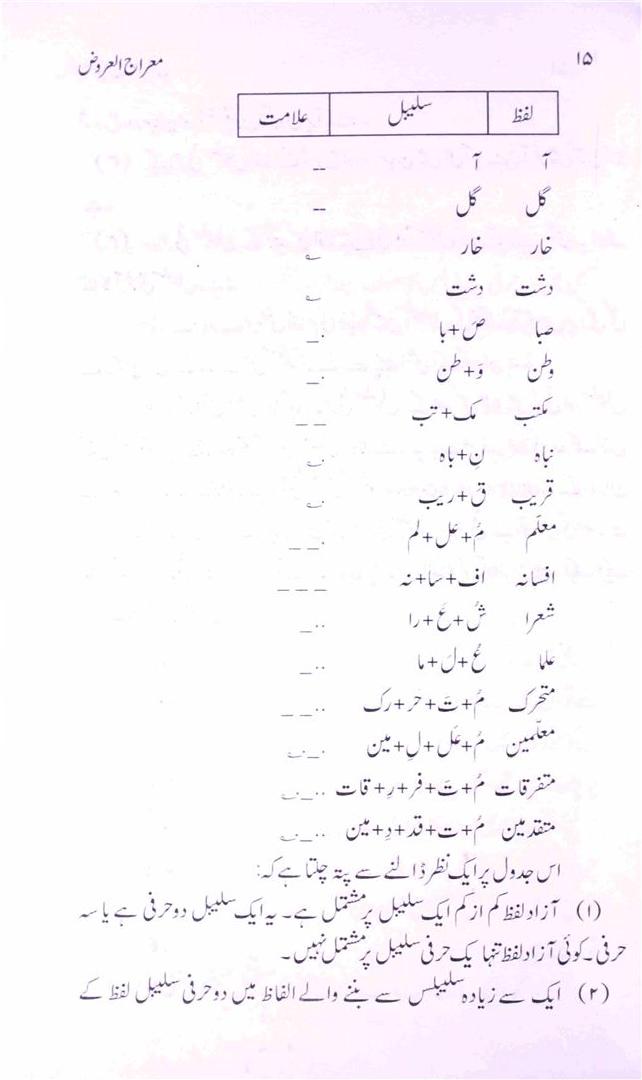 ۱۵ معراج العروض
لفظ سلیبل علامت
آ آ --
گل گل --
خار خار
دشت دشت
صبا صَ+با ._
وطن وَ+طن ._
مکتب مک+تب _ _
نباہ نِ+باہ
قریب ق+ریب
معلّم مُ+عل+لم ._ _
افسانہ اف+سا+نہ _ _ _
شعرا شُ+عَ+را .._
علما عُ+لَ+ما .._
متحرک مُ+تَ+حر+رک .._ _
معلّمین مُ+عَل+لِ+مین
متفرقات مُ+تَ+فر+رِ+قات
متقدمین مُ+ت+قد+دِ+مین
اس جدول پر ایک نظر ڈالنے سے پتہ چلتا ہے کہ:
(۱) آزاد لفظ کم از کم ایک سلیبل پر مشتمل ہے۔ یہ ایک سلیبل دو حرفی ہے یا سہ
حرفی۔ کوئی آزاد لفظ تنہا یک حرفی سلیبل پر مشتمل نہیں۔
(۲) ایک سے زیادہ سلیبلس سے بننے والے الفاظ میں دو حرفی سلیبل لفظ کے